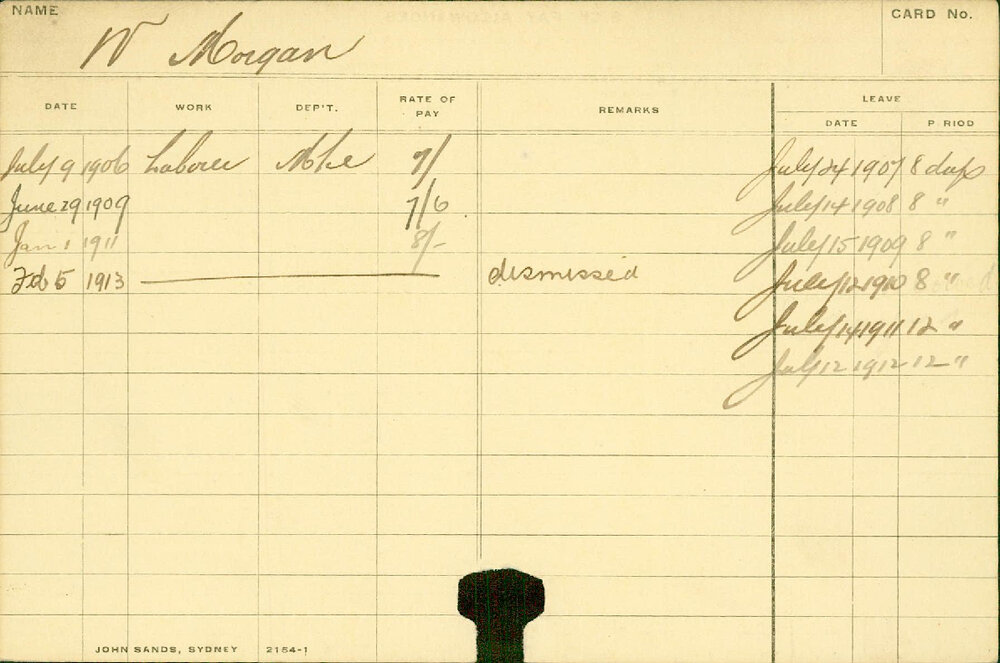 NAME
W Morgan
CARD No.
DATE WORK DEP'T. RATE OF PAY REMARKS LEAVE
DATE P RIOD
July 9 1906 Laborer 7/ July 24 1907 8 days
June 29 1909 7/6 July 14 1908 8 "
Jan 1 1911 8/- July 15 1909 8 "
Feb 5 1913 dismissed July 12 1910 8 "
July 14 1911 12 "
July 12 1912 12 "
JOHN SANDS, SYDNEY 2154-1